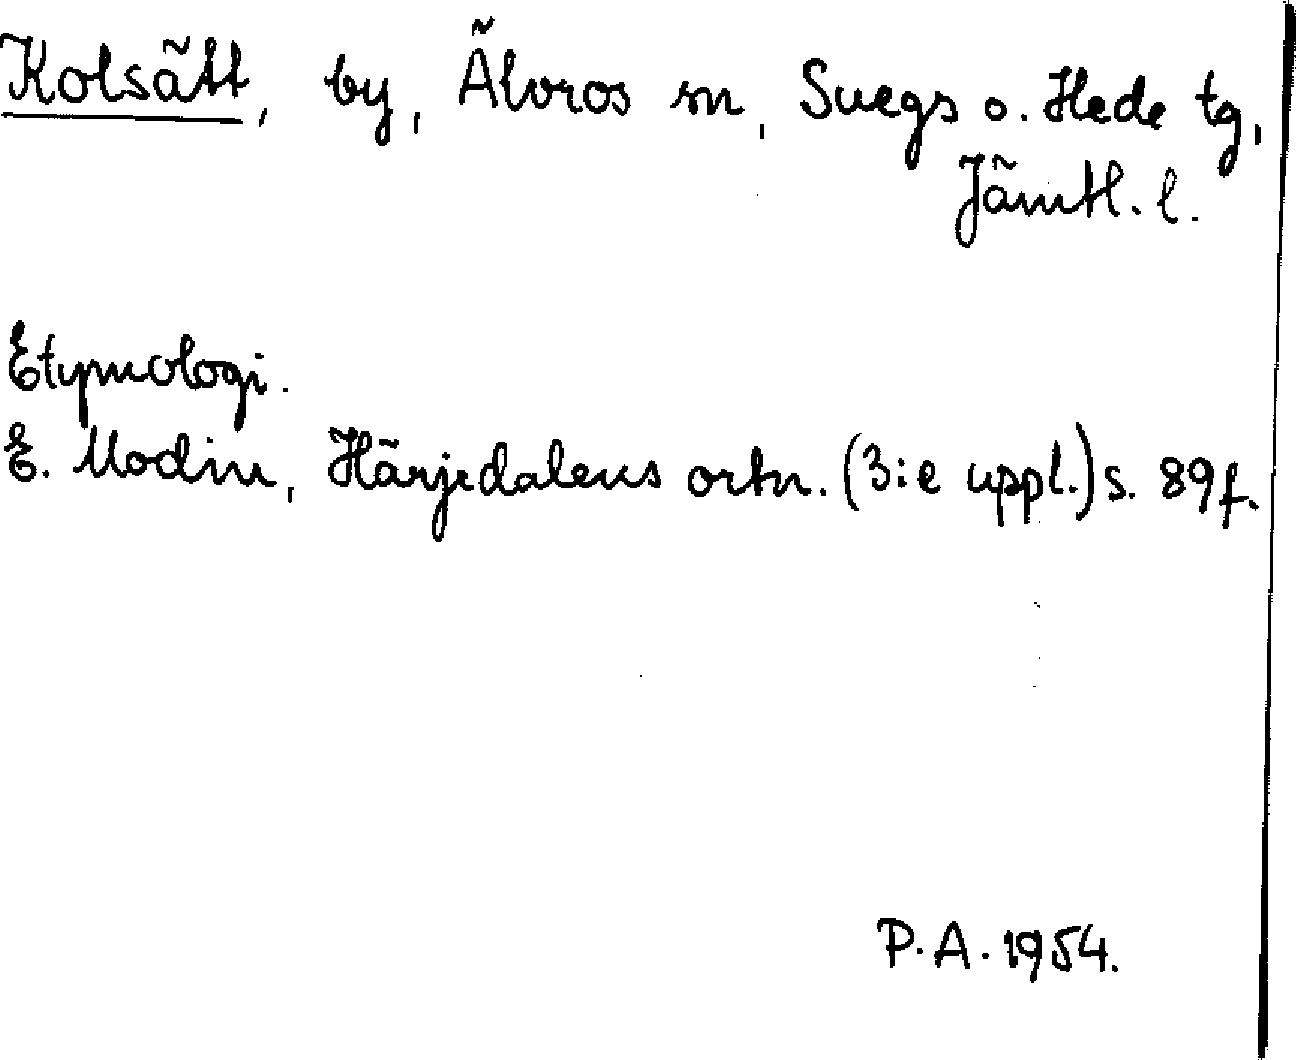 Kolsätt, by, Älvros sn, Svegs o. Hede tg,
Jämtl. l.
Etymologi.
E. Modin, Härjedalens ortn. (3:e uppl.) s. 89 f.
P.A. 1954.